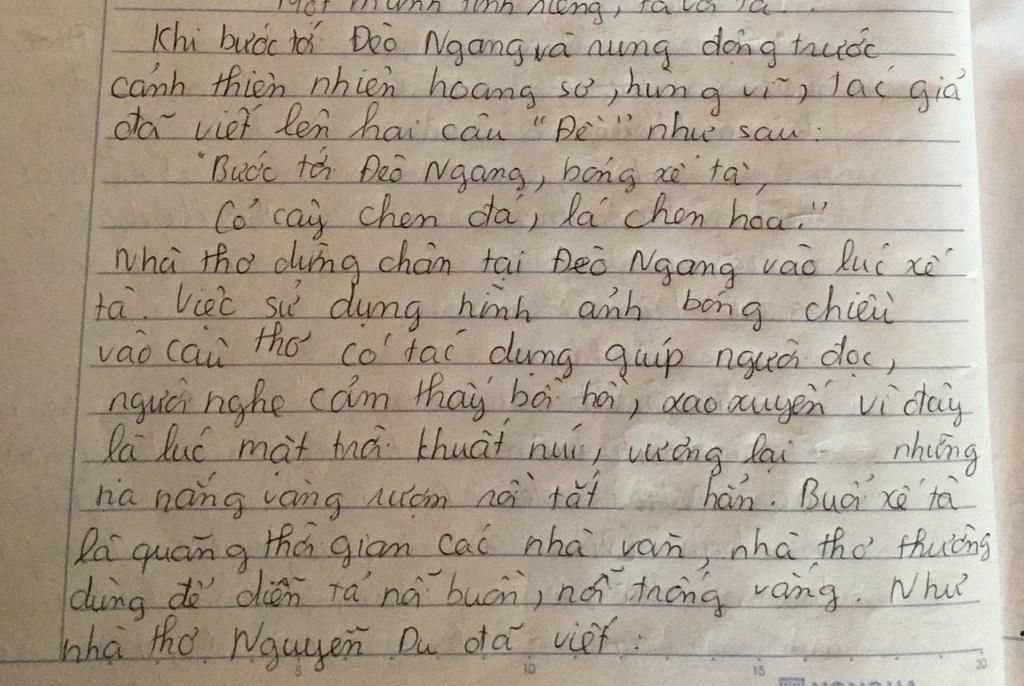 Một mảnh tình riêng, ta với ta...
Khi bước tới Đèo Ngang và rung động trước
cảnh thiên nhiên hoang sơ, hùng vĩ, tác giả
đã viết lên hai câu "Đề" như sau:
"Bước tới Đèo Ngang, bóng xế tà,
Cỏ cây chen đá, lá chen hoa."
Nhà thơ dừng chân tại Đèo Ngang vào lúc xế
tà. Việc sử dụng hình ảnh bóng chiều
vào câu thơ có tác dụng giúp người đọc,
người nghe cảm thấy bồi hồi, xao xuyến vì đây
là lúc mặt trời khuất núi, vương lại những
tia nắng vàng rượm rồi tắt hẳn. Buổi xế tà
là quãng thời gian các nhà văn, nhà thơ thường
dùng để diễn tả nỗi buồn, nỗi trống vắng. Như
nhà thơ Nguyễn Du đã viết:
5 10 15 20